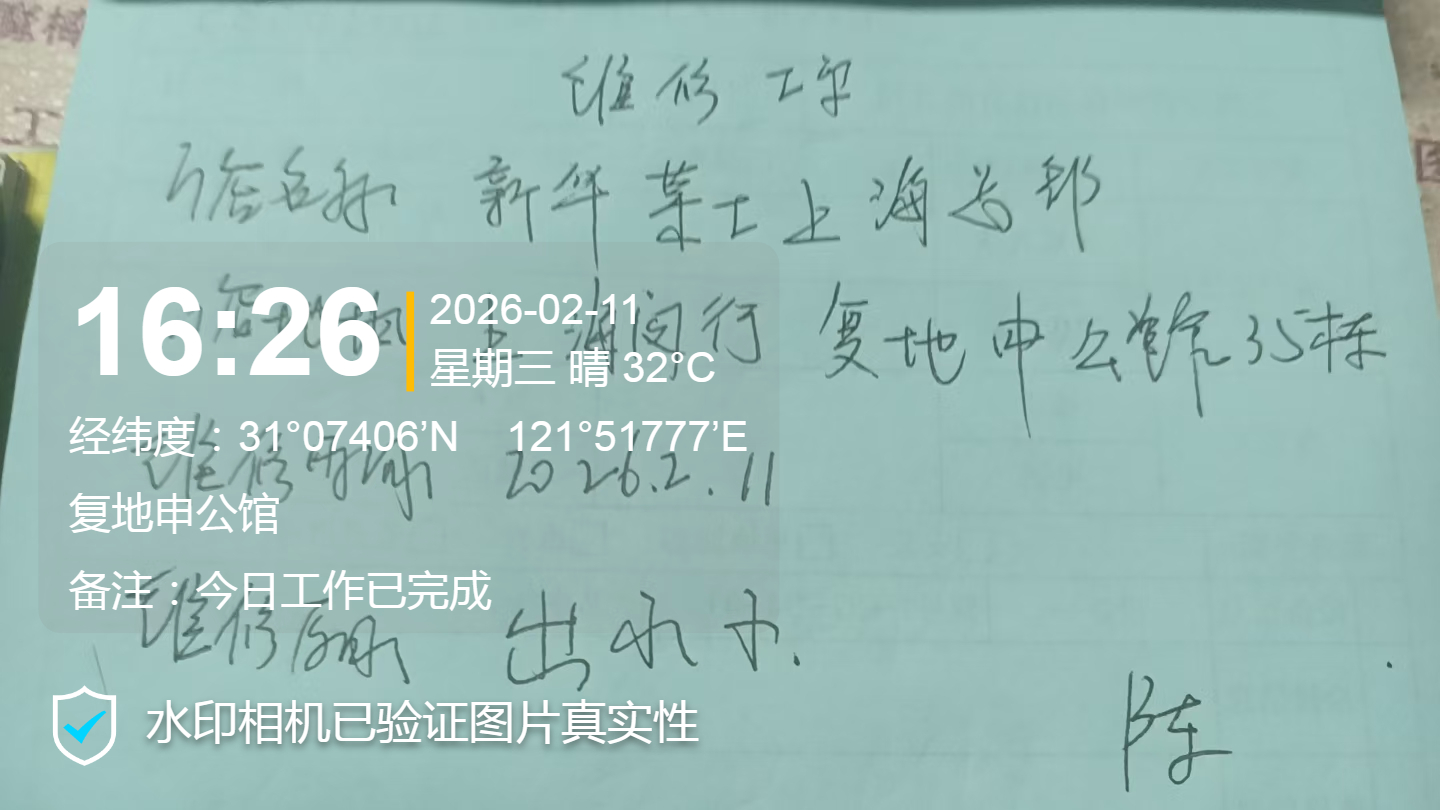 维修工单
门店名称 新华菜士上海总部
门店地址 上海闵行 复地申公馆35栋
16:26
2026-02-11
星期三 晴 32°C
经纬度：31°07406’N 121°51777’E
维修时间 2026.2.11
复地申公馆
备注：今日工作已完成
维修原因 出水小.
水印相机已验证图片真实性
陈